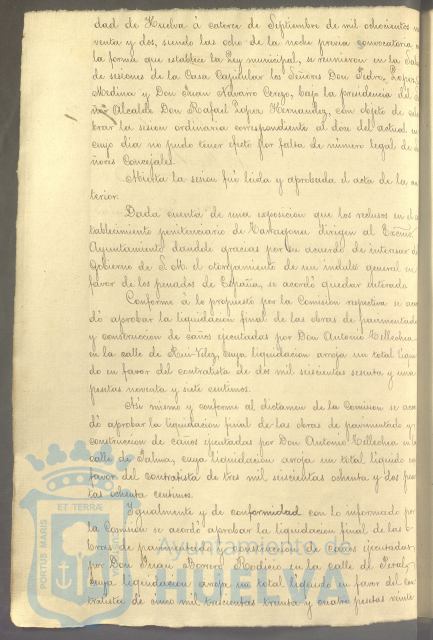 dad de Huelva á catorce de Septiembre de mil ochocientos no
venta y dos, siendo las ocho de la noche previa convocatoria en
la forma que establece la Ley municipal, se reunieron en la Sala
de sesiones de la Casa Capitular los Señores Don Pedro Lopez
Medina y Don Juan Navarro Cerezo, bajo la presidencia del Se
ñor Alcalde Don Rafael Lopez Hernandez, con objeto de cele
brar la sesion ordinaria correspondiente al doce del actual en
cuyo dia no pudo tener efecto por falta de número legal de se
ñores Concejales.
Abierta la sesion fué leida y aprobada el acta de la an
terior.
Dada cuenta de una exposicion que los reclusos en el es
tablecimiento penitenciario de Tarragona dirigen al Excmo.
Ayuntamiento dandole gracias por su acuerdo de interesar del
Gobierno de S. M. el otorgamiento de un indulto general en
favor de los penados de España, se acordó quedar enterado.
Conforme á lo propuesto por la Comision respectiva se acor
dó aprobar la liquidacion final de las obras de pavimentado
y construccion de caños ejecutadas por Don Antonio Tellechea
en la calle de Rui-Velez, cuya liquidacion arroja un total liqui
do en favor del contratista de dos mil seiscientas sesenta y una
pesetas noventa y siete centimos.
Asi mismo y conforme al dictamen de la Comision se acor
dó aprobar la liquidacion final de las obras de pavimentado y
construccion de caños ejecutadas por Don Antonio Tellechea en la
calle de Palma, cuya liquidacion arroja un total liquido en
favor del contratista de tres mil seiscientas ochenta y dos pese
tas ochenta centimos.
Igualmente y de conformidad con lo informado por
la Comision se acordó aprobar la liquidacion final de las o
bras de pavimentado y construccion de caños ejecutadas
por Don Juan Borrero en la calle de
cuya liquidacion arroja un total liquido en favor del con
tratista de cinco mil trescientas treinta y cuatro pesetas veinte
PORTUS MARIS
ET TERRAE
Ayuntamiento de
HUELVA